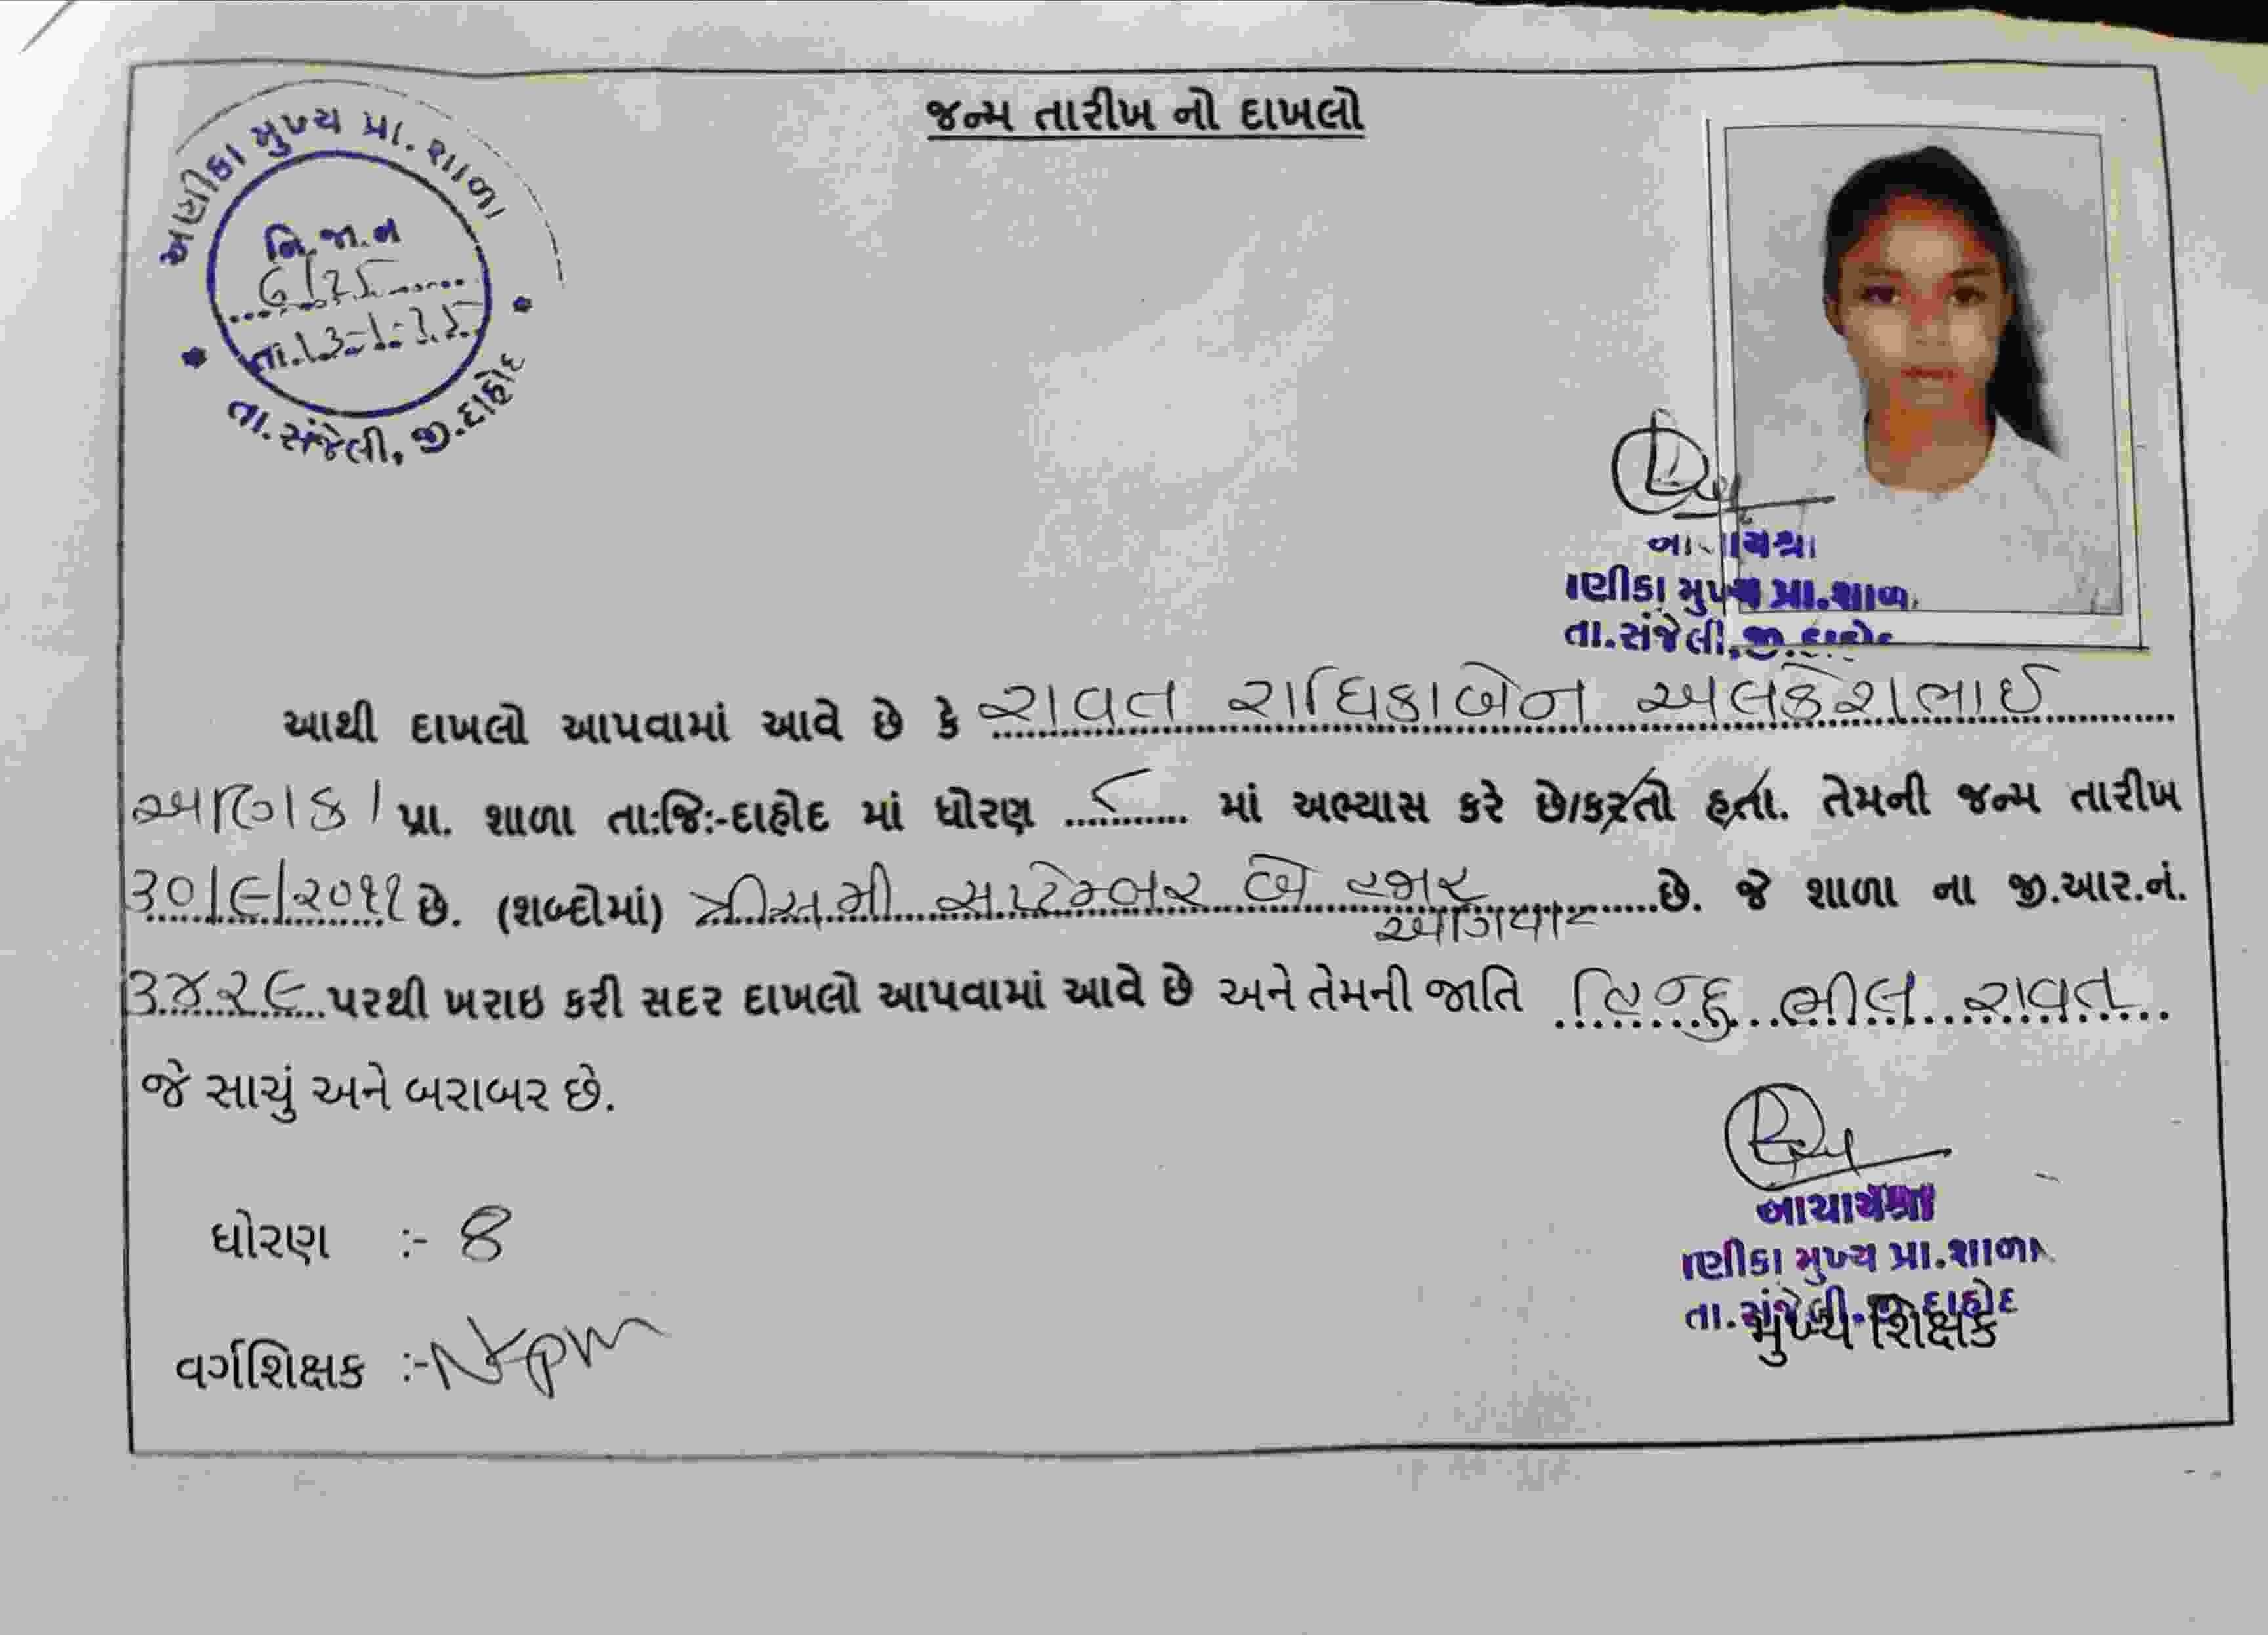 જન્મ તારીખ નો દાખલો
અણીકા મુખ્ય પ્રા. શાળા
નિ.જા.ન
6/25
તા.13-1-25
તા.સંજેલી, જી.દાહોદ
ણીકા મુખ્ય પ્રા.શાળ
તા.સંજેલી,જી.દાહોદ
આથી દાખલો આપવામાં આવે છે કે રાવત રાધિકાબેન અલકેશભાઈ
અણિકા પ્રા. શાળા તા:જિ:-દાહોદ માં ધોરણ ૮ માં અભ્યાસ કરે છે/કરતો હતા. તેમની જન્મ તારીખ
૩૦/૯/૨૦૧૧ છે. (શબ્દોમાં) ત્રીસમી સપ્ટેમ્બર બે હજાર છે. જે શાળા ના જી.આર.નં.
અગિયાર
૩૪૨૯ પરથી ખરાઇ કરી સદર દાખલો આપવામાં આવે છે અને તેમની જાતિ હિન્દુ ભીલ રાવત
જે સાચું અને બરાબર છે.
ધોરણ :- 8
આચાર્યશ્રી
ણીકા મુખ્ય પ્રા.શાળા
તા.સંજેલી.જી.દાહોદ
મુખ્ય શિક્ષક
વર્ગશિક્ષક :-